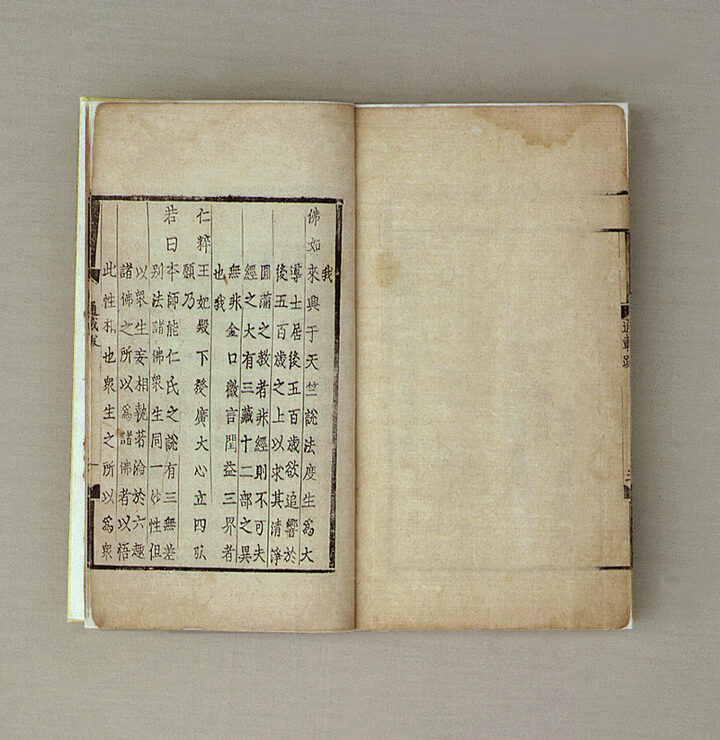 我
佛如來興于天竺說法度生爲大
導士居後五百歲欲追響於
後五百歲之上以求其清淨
圓滿之教者非經則不可夫
經之大有三藏十二部之異
無非金口微言閏益三界者
也我
仁粹王妃殿下發廣大心立四弘
願乃
若曰本師能仁氏之說有三無差
別法諸佛衆生同一妙性但
以衆生妄相執著淪於六趣
諸佛之所以爲諸佛者以悟
此性相也衆生之所以爲衆